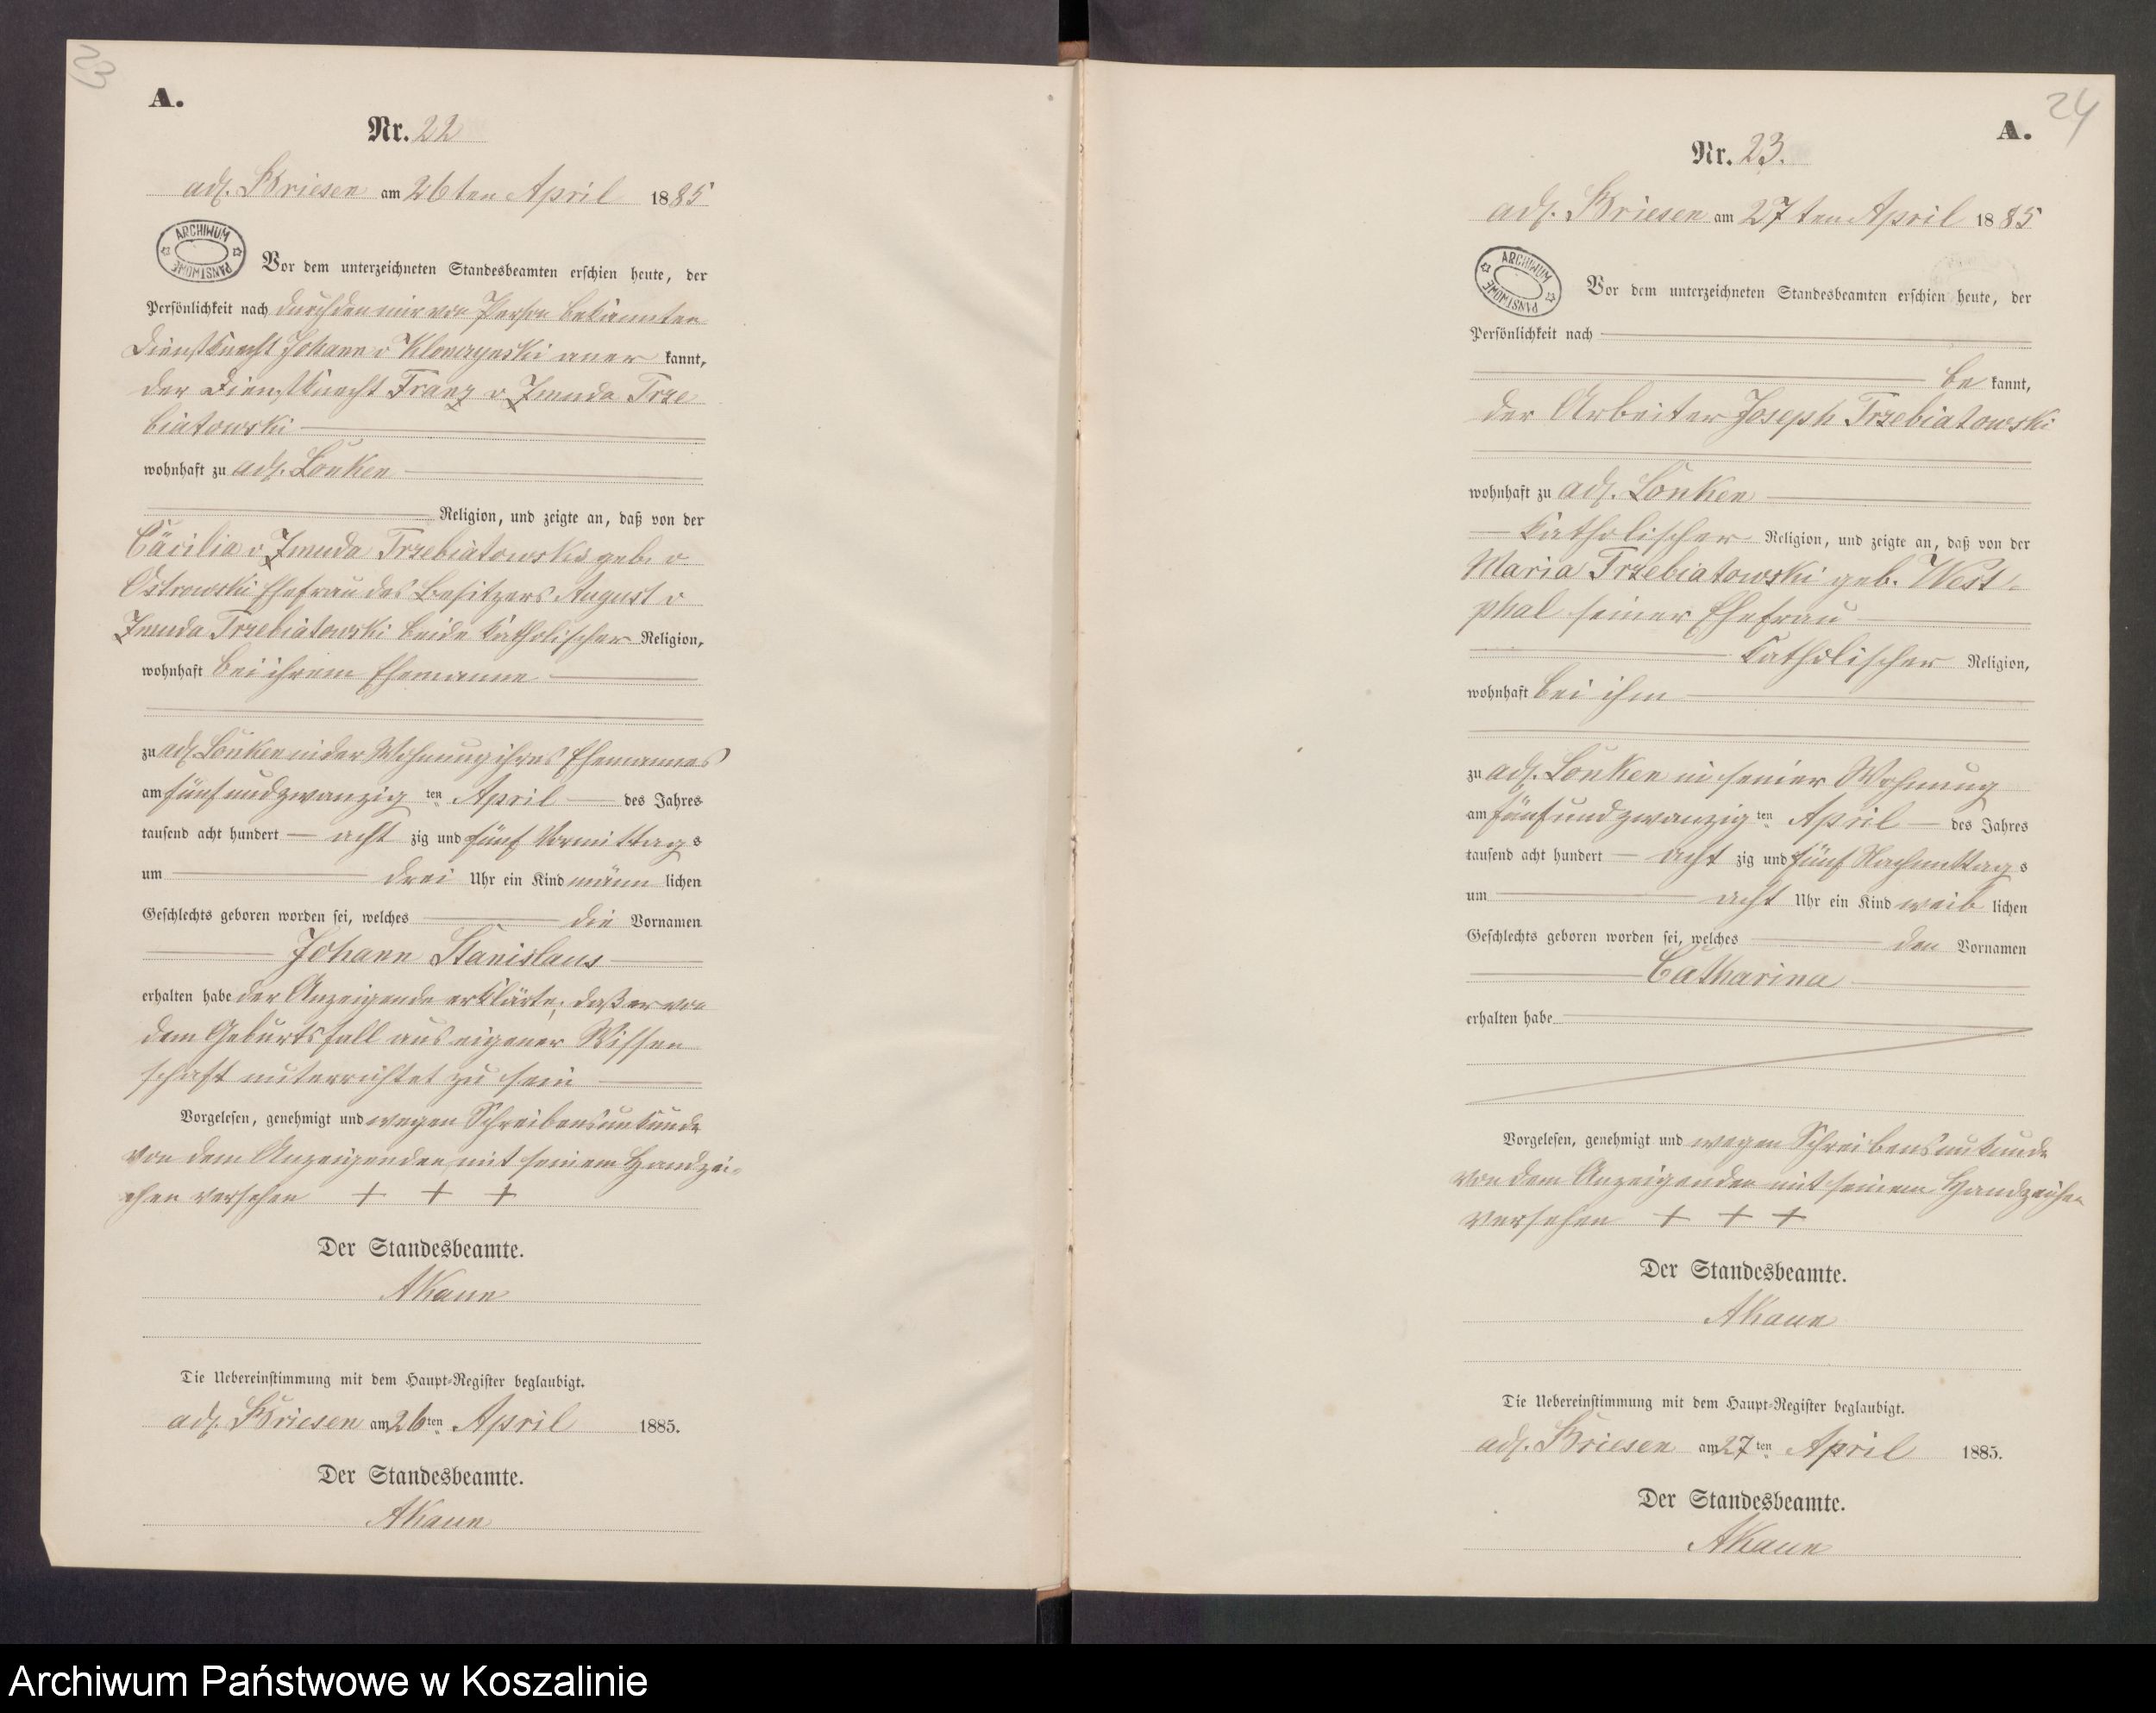 23
A.
Nr. 22
adl. Briesen am 26ten April 1885
ARCHIWUM PAŃSTWOWE
Vor dem unterzeichneten Standesbeamten erschien heute, der
Persönlichkeit nach durch den mir von Person bekannten
Dienstknecht Johann v Klonczynski aner kannt,
der Dienstknecht Franz v Zmuda Trze
biatowski
wohnhaft zu adl. Lonken
Religion, und zeigte an, daß von der
Cäcilia v Zmuda Trzebiatowska geb. v
Ostrowski Ehefrau des Besitzers August v
Zmuda Trzebiatowski beide katholischer Religion,
wohnhaft bei ihrem Ehemanne
zu adl. Lonken in der Wohnung ihres Ehemannes
am fünf und zwanzig ten April des Jahres
tausend acht hundert acht zig und fünf Vormittags
um drei Uhr ein Kind männ lichen
Geschlechts geboren worden sei, welches die Vornamen
Johann Stanislaus
erhalten habe der Anzeigende erklärte, daß er von
dem Geburtsfall aus eigener Wissen
schaft unterrichtet zu sein
Vorgelesen, genehmigt und wegen Schreibensunkunde
von dem Anzeigenden mit seinem Handzei-
chen versehen + + +
Der Standesbeamte.
AKaun
Die Uebereinstimmung mit dem Haupt-Register beglaubigt.
adl. Briesen am 26ten April 1885.
Der Standesbeamte.
AKaun
24
A.
Nr. 23.
adl. Briesen am 27ten April 1885
ARCHIWUM PAŃSTWOWE
Vor dem unterzeichneten Standesbeamten erschien heute, der
Persönlichkeit nach
be kannt,
der Arbeiter Joseph Trzebiatowski
wohnhaft zu adl. Lonken
katholischer Religion, und zeigte an, daß von der
Maria Trzebiatowski geb. West-
phal seiner Ehefrau
katholischer Religion,
wohnhaft bei ihm
zu adl. Lonken in seiner Wohnung
am fünf und zwanzig ten April des Jahres
tausend acht hundert acht zig und fünf Nachmittags
um acht Uhr ein Kind weib lichen
Geschlechts geboren worden sei, welches den Vornamen
Catharina
erhalten habe
Vorgelesen, genehmigt und wegen Schreibensunkunde
von dem Anzeigenden mit seinem Handzeichen
versehen + + +
Der Standesbeamte.
AKaun
Die Uebereinstimmung mit dem Haupt-Register beglaubigt.
adl. Briesen am 27ten April 1885.
Der Standesbeamte.
AKaun
Archiwum Państwowe w Koszalinie